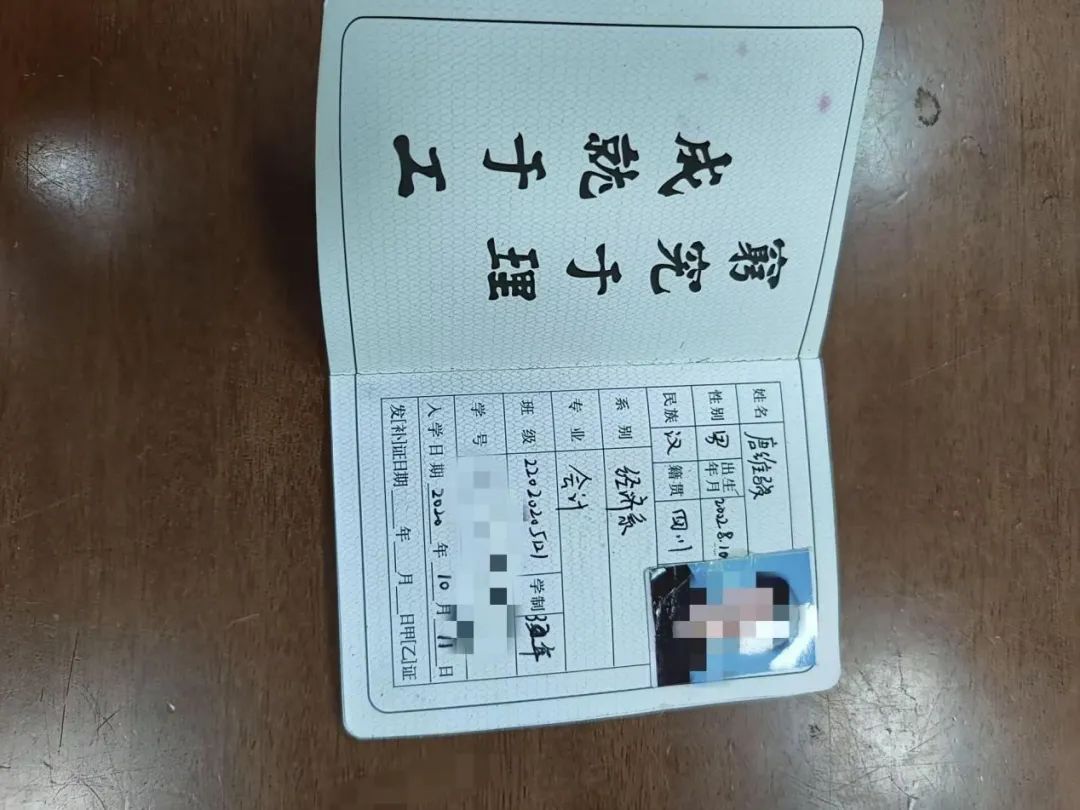 窮究于理
成就于工
姓名 唐维骏
性别 男 出生年月 2002.8.10
民族 汉 籍贯 四川
系别 经济系
专业 会计
班级 22020205121 学制
学号
入学日期 2020 年 10 月 11 日
发[补]证日期 年 月 日甲[乙]证